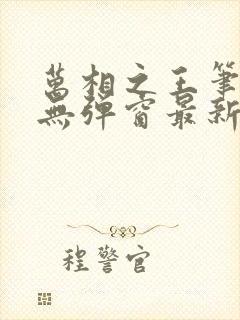 萬相之王筆
無彈窗最新
程警官